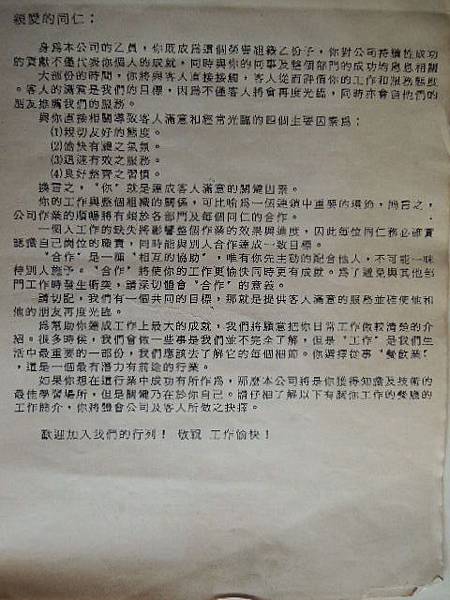 親愛的同仁：
身為本公司的乙員，你既成為這個榮譽組織乙份子，你對公司持續性成功
的貢獻不僅代表你個人的成就，同時與你的同事及整個部門的成功均息息相關
大部份的時間，你將與客人直接接觸，客人從而評價你的工作和服務態度
。客人的滿意是我們的目標，因為不僅客人將會再度光臨，同時亦會向他們的
朋友推薦我們的服務。
與你直接相關導致客人滿意和經常光臨的四個主要因素為：
(1)親切友好的態度。
(2)愉快有禮之氣氛。
(3)迅速有效之服務。
(4)良好整齊之習慣。
換言之，〝你〞就是達成客人滿意的關鍵因素。
你的工作與整個組織的關係，可比喻為一個連鎖中重要的環節，簡言之，
公司作業的順暢將有賴於各部門及每個同仁的合作。
一個人工作的缺失將影響整個作業的效果與進度，因此每位同仁務必確實
認識自己崗位的職責，同時能與別人合作達成一致目標。
〝合作〞是一種〝相互的協助〞，唯有你先主動的配合他人，不可能一味
待別人施予。〝合作〞將使你的工作更愉快同時更有成就。為了避免與其他部
門工作時發生衝突，請深切體會〝合作〞的意義。
請切記，我們有一個共同的目標，那就是提供客人滿意的服務並確使他和
他的朋友再度光臨。
為幫助你達成工作上最大的成就，我們將願意把你日常工作做較清楚的介
紹。很多時候，我們會做一些事是我們並不完全了解，但是〝工作〞是我們生
活中最重要的一部份，我們應該去了解它的每個細節。你選擇從事〝餐飲業〞
，這是一個最有潛力有前途的行業。
如果你想在這行業中成功有所作為，那麼本公司將是你獲得知識及技術的
最佳學習場所，但是關鍵乃在於你自己。請仔細了解以下有關你工作的餐廳的
工作簡介，你將體會公司及客人所做之抉擇。
歡迎加入我們的行列！ 敬祝 工作愉快！